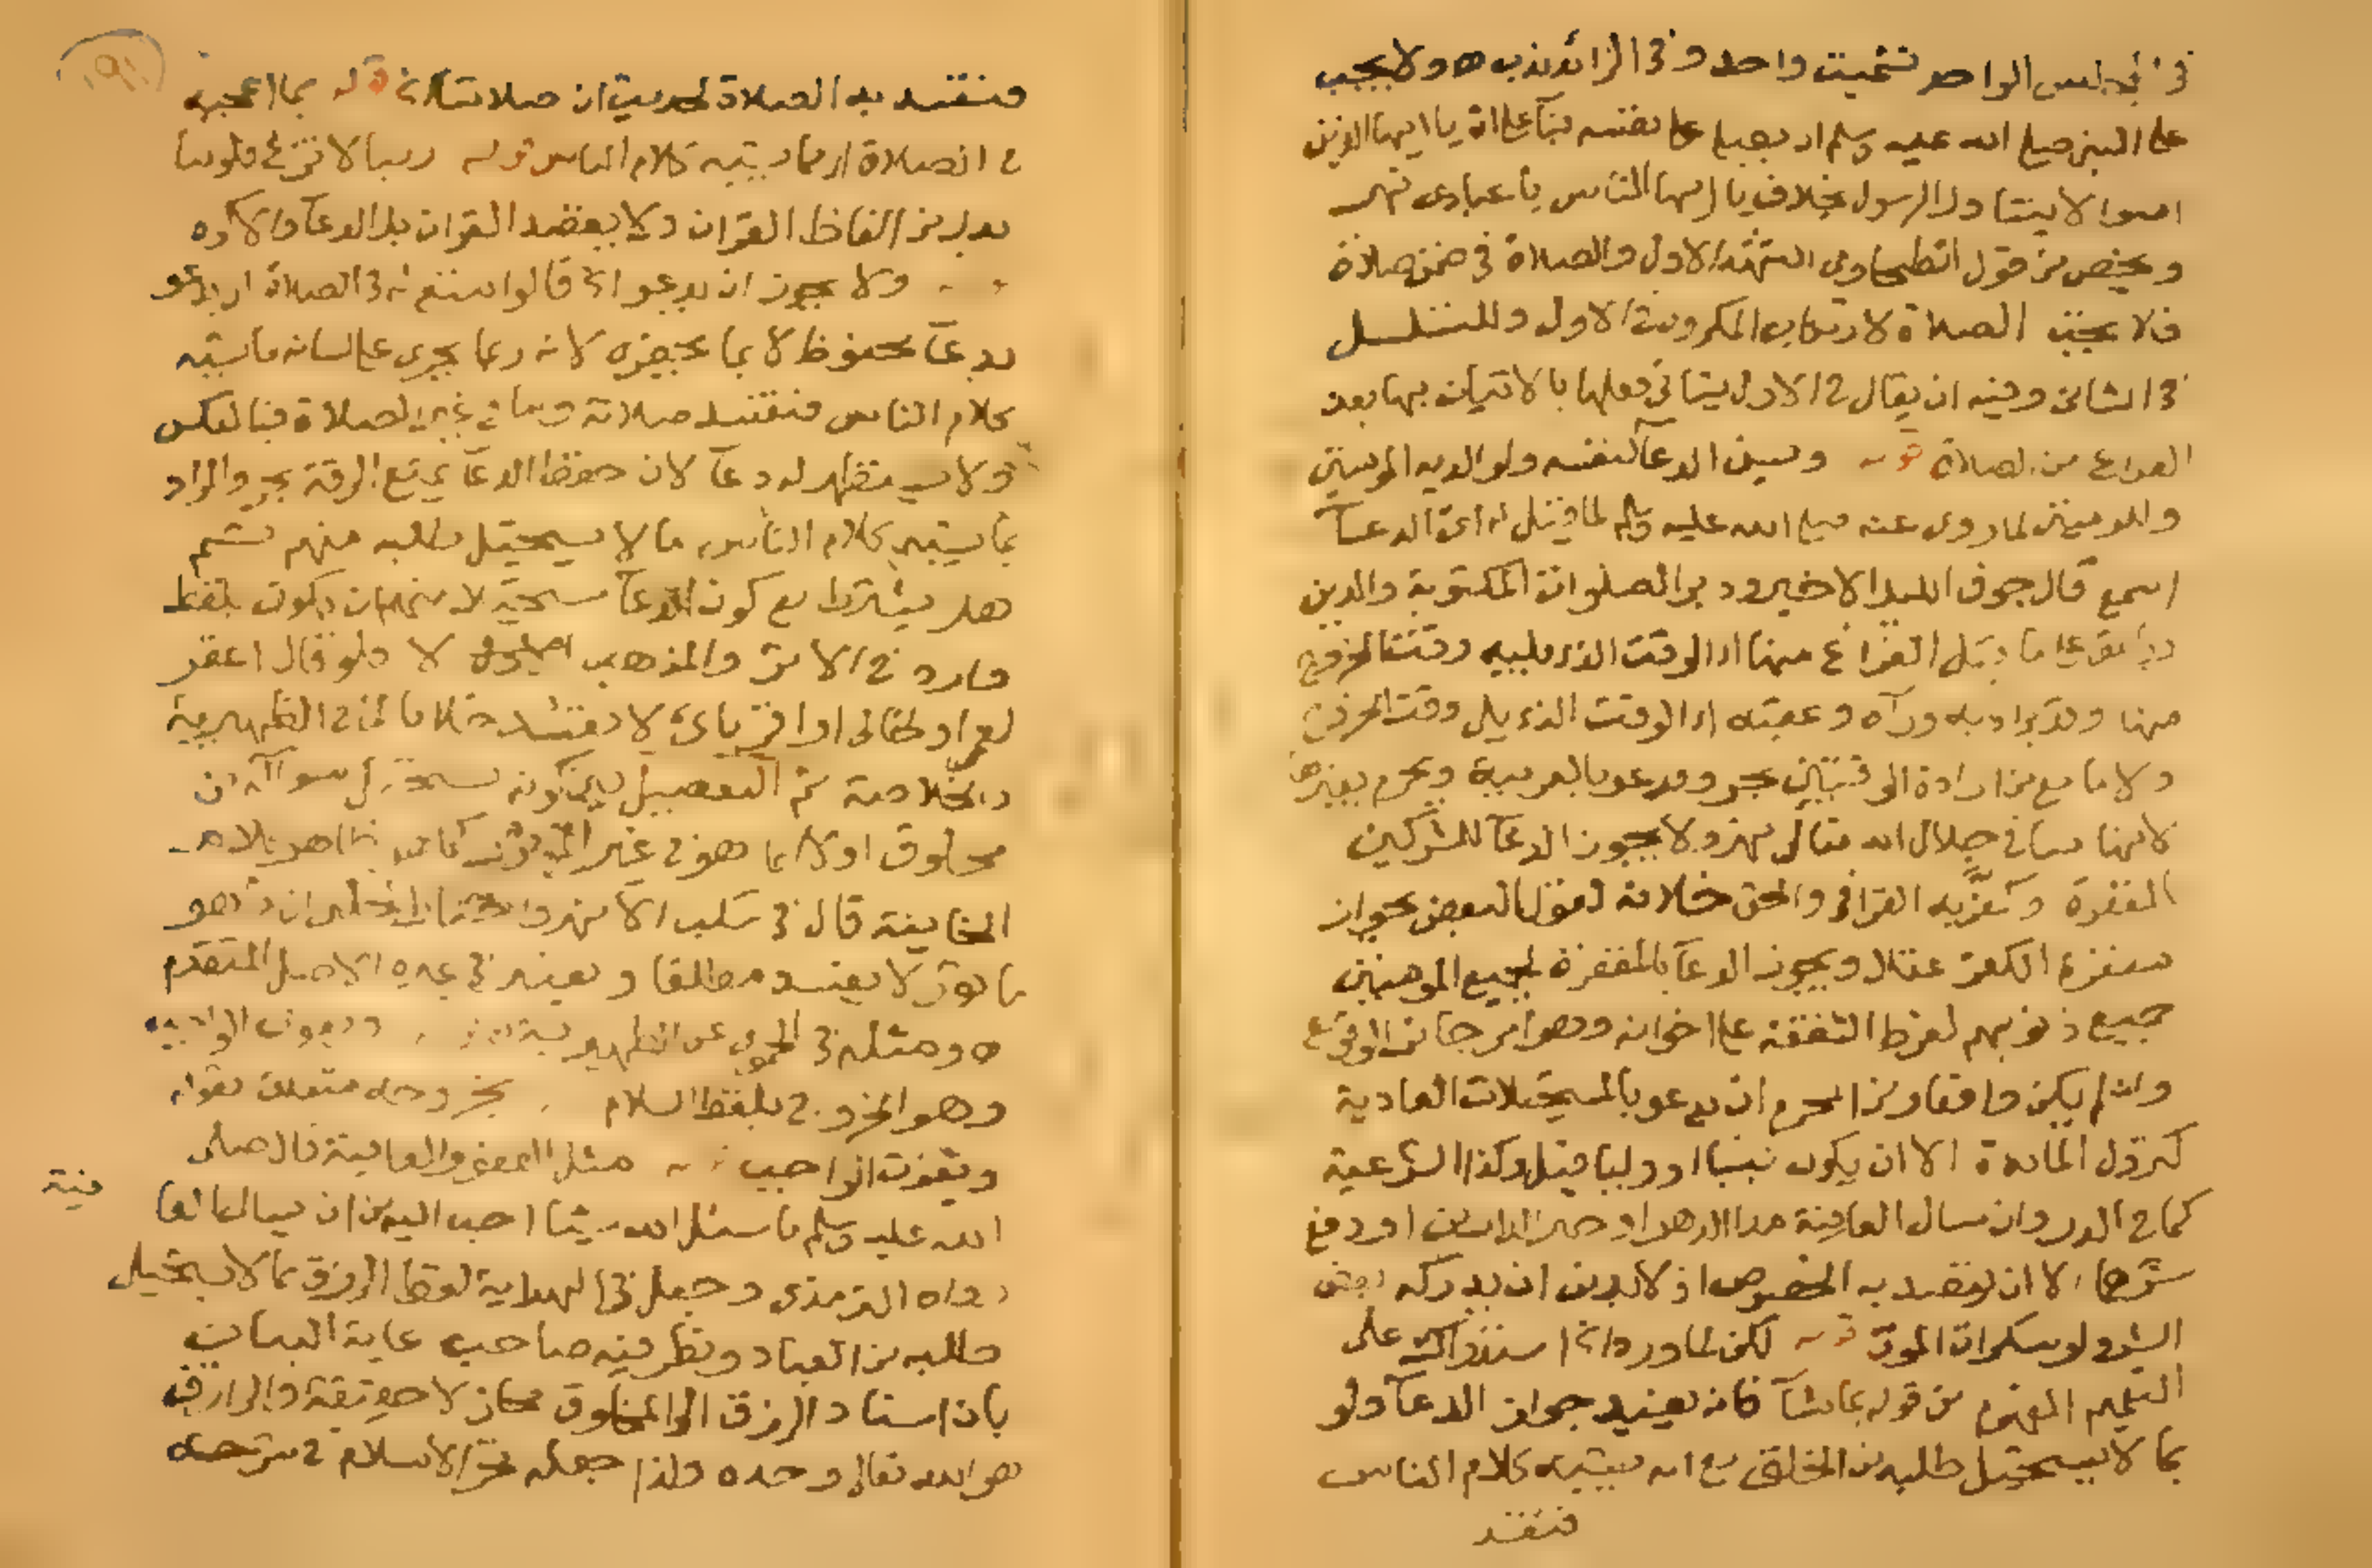 في المجلس الواحد تشميت واحد وفي الزائد ندب ه ولا يجب
على النبي صلى الله عليه وسلم ان يصلي على نفسه بناء على ان يا ايها الذين
امنوا لا يتناول الرسول بخلاف يا ايها الناس يا عبادي نهر
ويخص من قول الطحاوي التشهد الاول والصلاة في ضمن صلاة
فلا تجب الصلاة لارتكاب المكروه في الاول وللتسلسل
في الثاني وفيه ان يقال في الاول يتأتى فعلها بالاتيان بها بعد
الفراغ من الصلاة قوله وسن الدعاء لنفسه ولوالديه المومنين
والمومنين لما روى عنه صلى الله عليه وسلم لما قيل له اي الدعاء
اسمع قال جوف الليل الاخير ودبر الصلوات المكتوبة والدبر
يطلق على ما قبل الفراغ منها اي الوقت الذي يليه وقت الخروج
منها وقد يراد به وراه وعقبه اي الوقت الذي يلي وقت الخروج
ولا مانع من ارادة الوقتين بحر ويدعو بالعربية ويحرم بغيرها
لانها تنافي جلال الله تعالى نهر ولا يجوز الدعاء للمشركين
بالمغفرة وكفر به القرافي والحق خلافه لقول البعض بجواز
مغفرة الكفر عقلا ويجوز الدعاء بالمغفرة لجميع المومنين
جميع ذنوبهم لفرط الشفقة على اخوانه وهو امر جائز الوقوع
وان لم يكن واقعا ومن المحرم ان يدعو بالمستحيلات العادية
كنزول المائدة الا ان يكون نبيا او وليا قيل وكذا الشرعية
كما في الدر وان سال العافية مدا الدهر او خير الدارين او دفع
شرهما الا ان يقصد به الخصوص اذ لا بد من ان يدركه بعض
الشر ولو سكرات الموت قوله لكن لما ورد الخ استدراك على
التعميم المفهوم من قوله بما شاء فانه يفيد جواز الدعاء ولو
بما لا يستحيل طلبه من الخلق مع انه يشبه كلام الناس
فتفسد
فتفسد به الصلاة لحديث ان صلاتنا الخ قوله بما اعجبه
في الصلاة اي مما يشبه كلام الناس قوله ربنا لا تزغ قلوبنا
بدل من الفاظ القران ولا يقصد القران بل الدعاء والا كره
ولا يجوز ان يدعو الخ قالوا ينبغي له في الصلاة ان يدعو
بدعاء محفوظ لا بما يحضره لانه ربما يجري على لسانه ما يشبه
كلام الناس فتفسد صلاته وما في غير الصلاة فبالعكس
ولا يستظهر له دعاء لان حفظ الدعاء يمنع الرقة بحر والمراد
بما يشبه كلام الناس ما لا يستحيل طلبه منهم ثم
هل يشترط مع كون الدعاء مستحيلا منهم ان يكون بلفظ
وارد في الاثر والمذهب لا فلو قال اغفر
لعمي او لخالي او اقربائي لا تفسد خلافا لما في الظهيرية
والخلاصة ثم التفصيل بين كونه يستحيل سواله من
مخلوق او لا انما هو في غير الماثور كما هو ظاهر كلام
الخانية قال في سكب الانهر
ماثور لا يفسد مطلقا ويعتبر في غيره الاصل المتقدم
ه ومثله في الحموي عن الظهيرية ويفوت الواجب
وهو الخروج بلفظ السلام بخروجه متعلق بقوله
ويفوت الواجب قوله مثل العفو والعافية قال صلى
الله عليه وسلم ما سئل الله شيئا احب اليه من ان يسال العافية
رواه الترمذي وجعل في الهداية لفظ الرزق مما لا يستحيل
طلبه من العباد ونظر فيه صاحب غاية البيان
بان اسناد الرزق الى المخلوق مجاز لا حقيقة والرازق
هو الله تعالى وحده ولذا جعله فخر الاسلام في شرحه